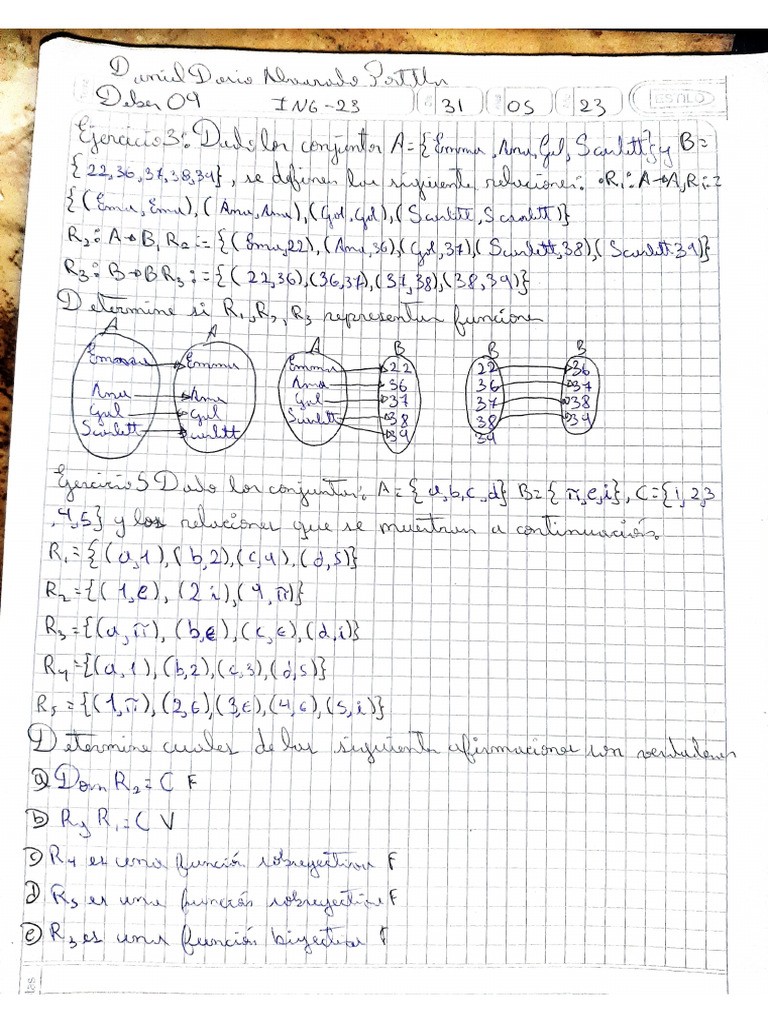 Daniel Dario Alvarado
Deber 09 ING-23 31 05 23
ESTILO
Ejercicio 3: Dado los conjuntos A={Emma, Ana, Gal, Scarlett} y B=
{22,36,37,38,39}, se definen las siguiente relaciones: •R₁: A→A, R₁:=
{(Ema, Ema), (Ana, Ana), (Gal, Gal), (Scarlett, Scarlett)}
R₂: A→B, R₂:={(Ema,22), (Ana,36), (Gal,37), (Scarlett,38), (Scarlett,39)}
R₃: B→B R₃:={(22,36), (36,37), (37,38), (38,39)}
Determine si R₁, R₂, R₃ representan funciones
A A A B B B
Emma Emma Emma 22 22 36
Ana Ana Ana 36 36 37
Gal Gal Gal 37 37 38
Scarlett Scarlett Scarlett 38 38 39
39 39
Ejercicio 5 Dado los conjuntos: A={a,b,c,d} B={π,e,i}, C={1,2,3
,4,5} y los relaciones que se muestran a continuación.
R₁={(a,1), (b,2), (c,4), (d,5)}
R₂={(1,e), (2 i), (4,π)}
R₃={(a,π), (b,e), (c,e), (d,i)}
R₄={(a,1), (b,2), (c,3), (d,5)}
R₅={(1,π), (2,e), (3,e), (4,e), (5,i)}
Determine cuales de las siguiente afirmaciones son verdaderas
a) Dom R₂=C F
b) Rg R₁=C V
c) R₄ es una función sobreyectiva F
d) R₅ es una función sobreyectiva F
e) R₃ es una función biyectiva